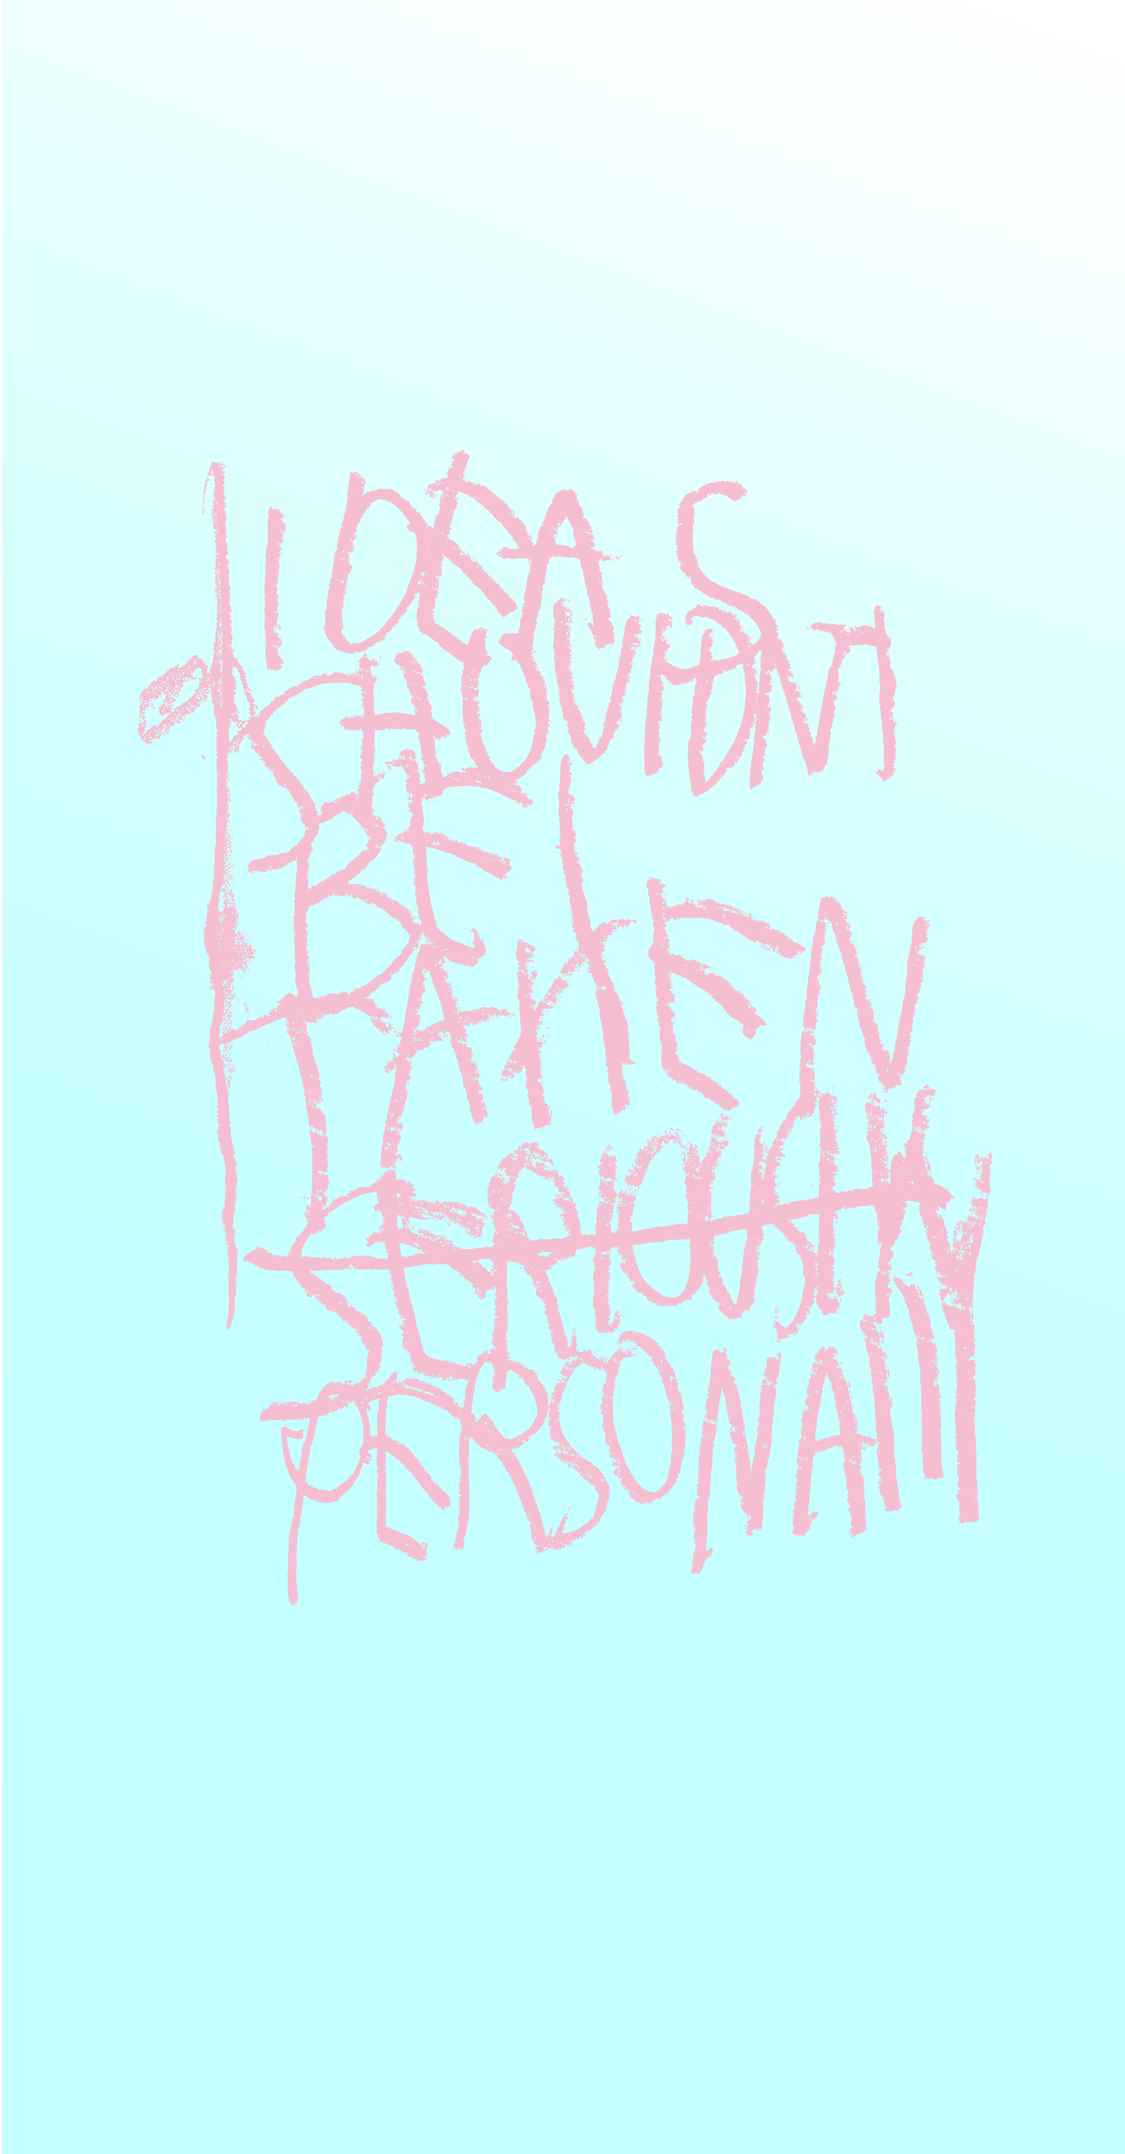 IDEAS
SHOULDNT
BE
TAKEN
SERIOUSLY
PERSONALLY